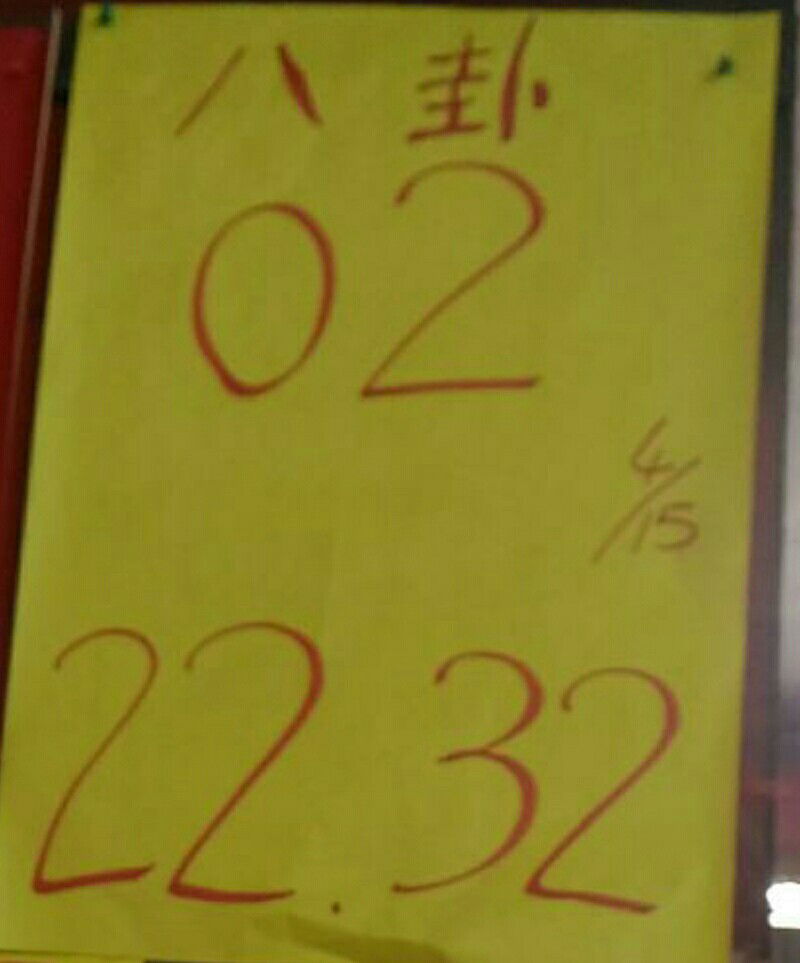 八卦
02
4/15
22.32